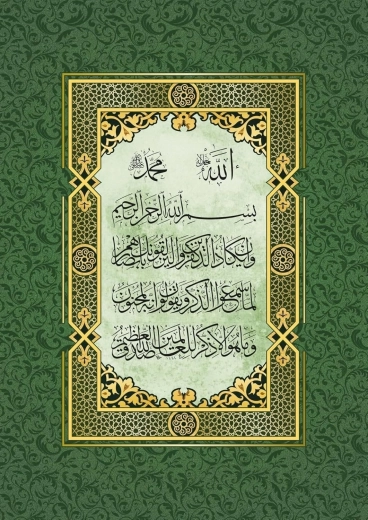 الله جل جلاله محمد ﷺ
بسم الله الرحمن الرحيم
وإن يكاد الذين كفروا ليزلقونك بأبصارهم
لما سمعوا الذكر ويقولون إنه لمجنون
وما هو إلا ذكر للعالمين صدق الله العظيم